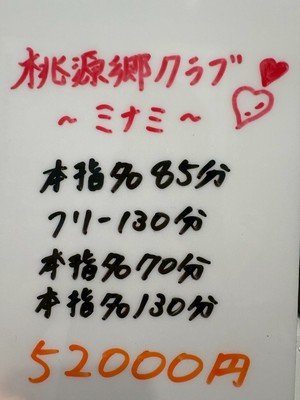 桃源郷クラブ
～ミナミ～
本指名85分
フリー130分
本指名70分
本指名130分
52000円